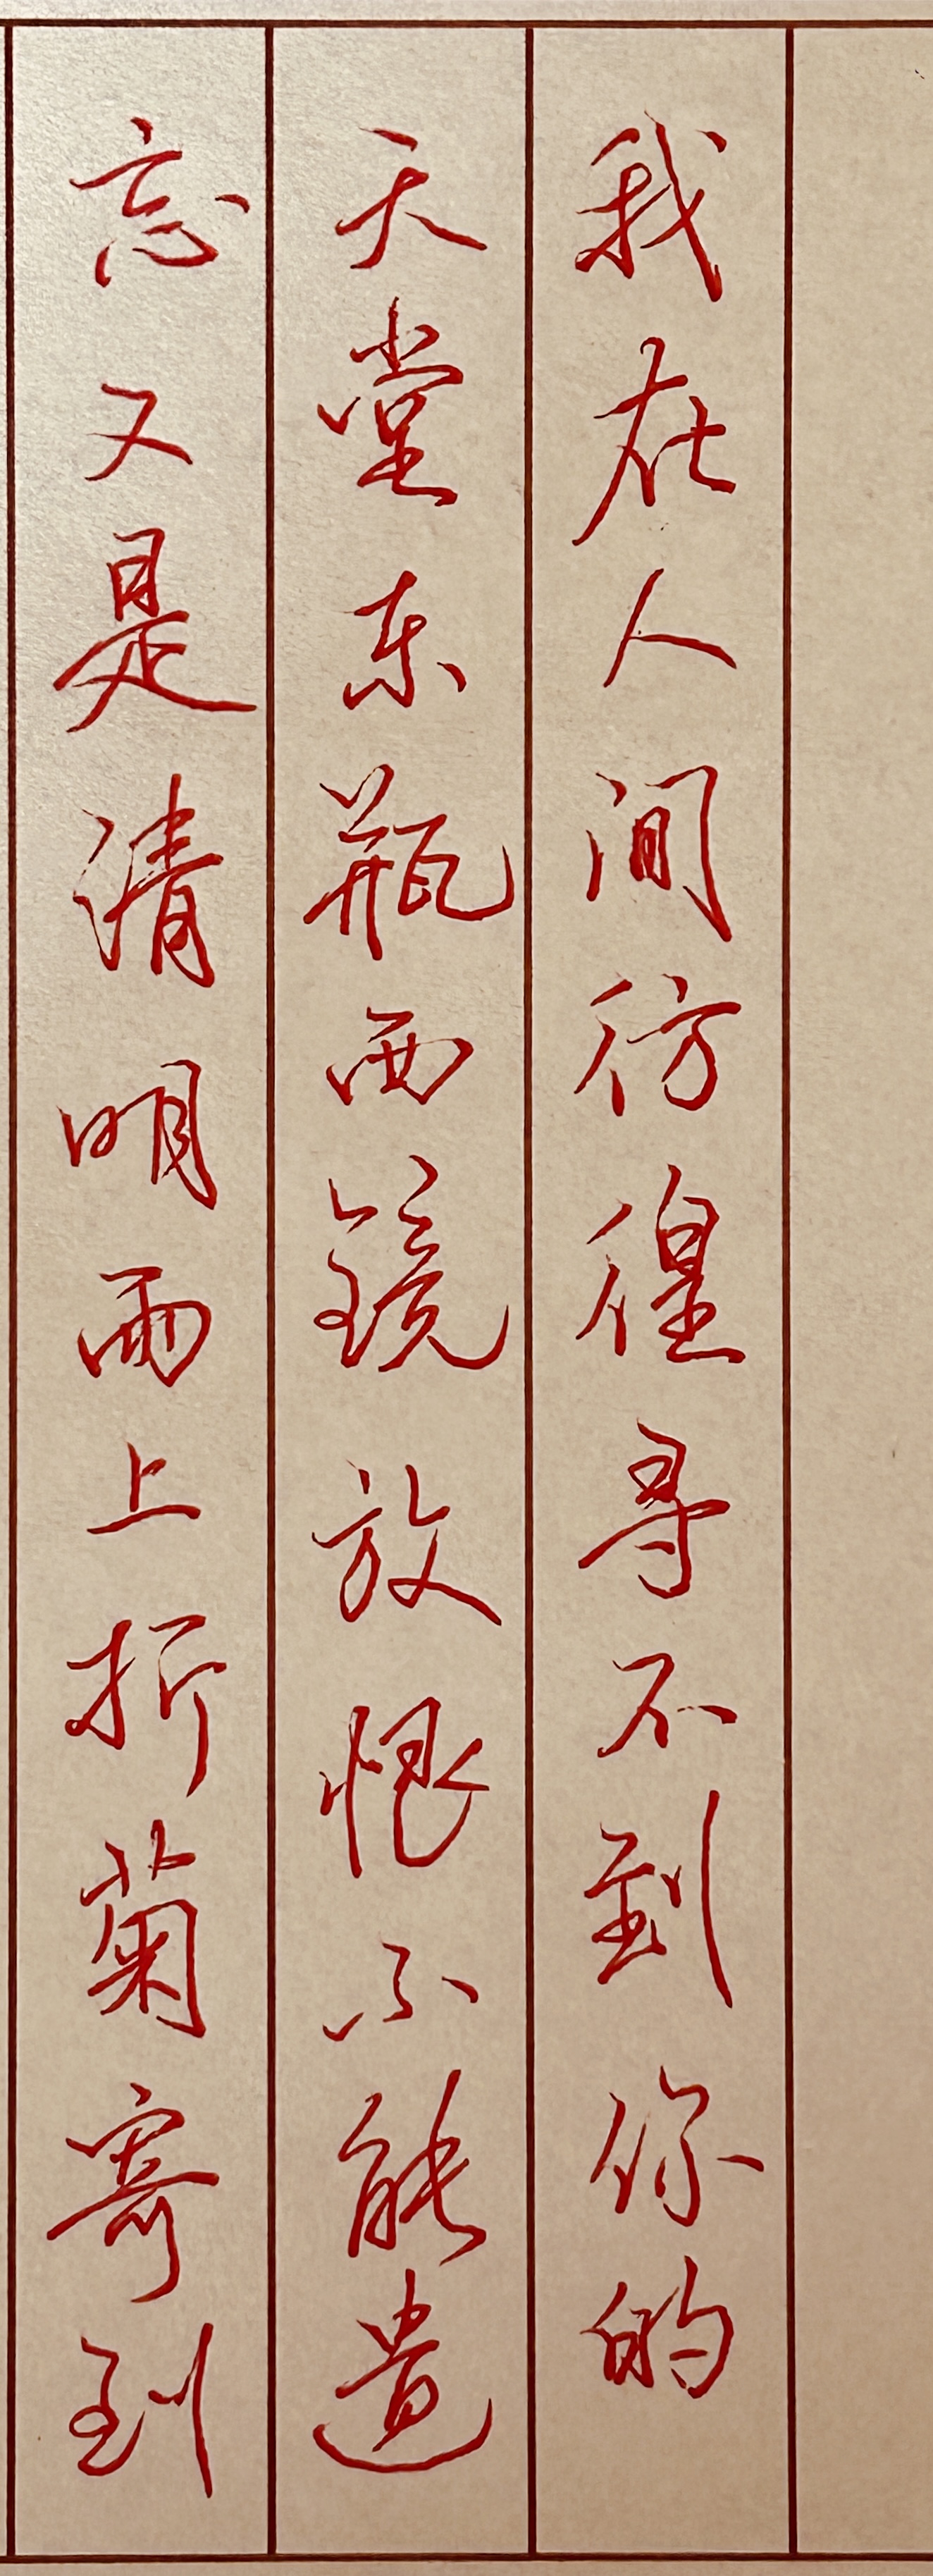 我在人间彷徨寻不到你的
天堂东瓶西镜放恨不能遗
忘又是清明雨上折菊寄到